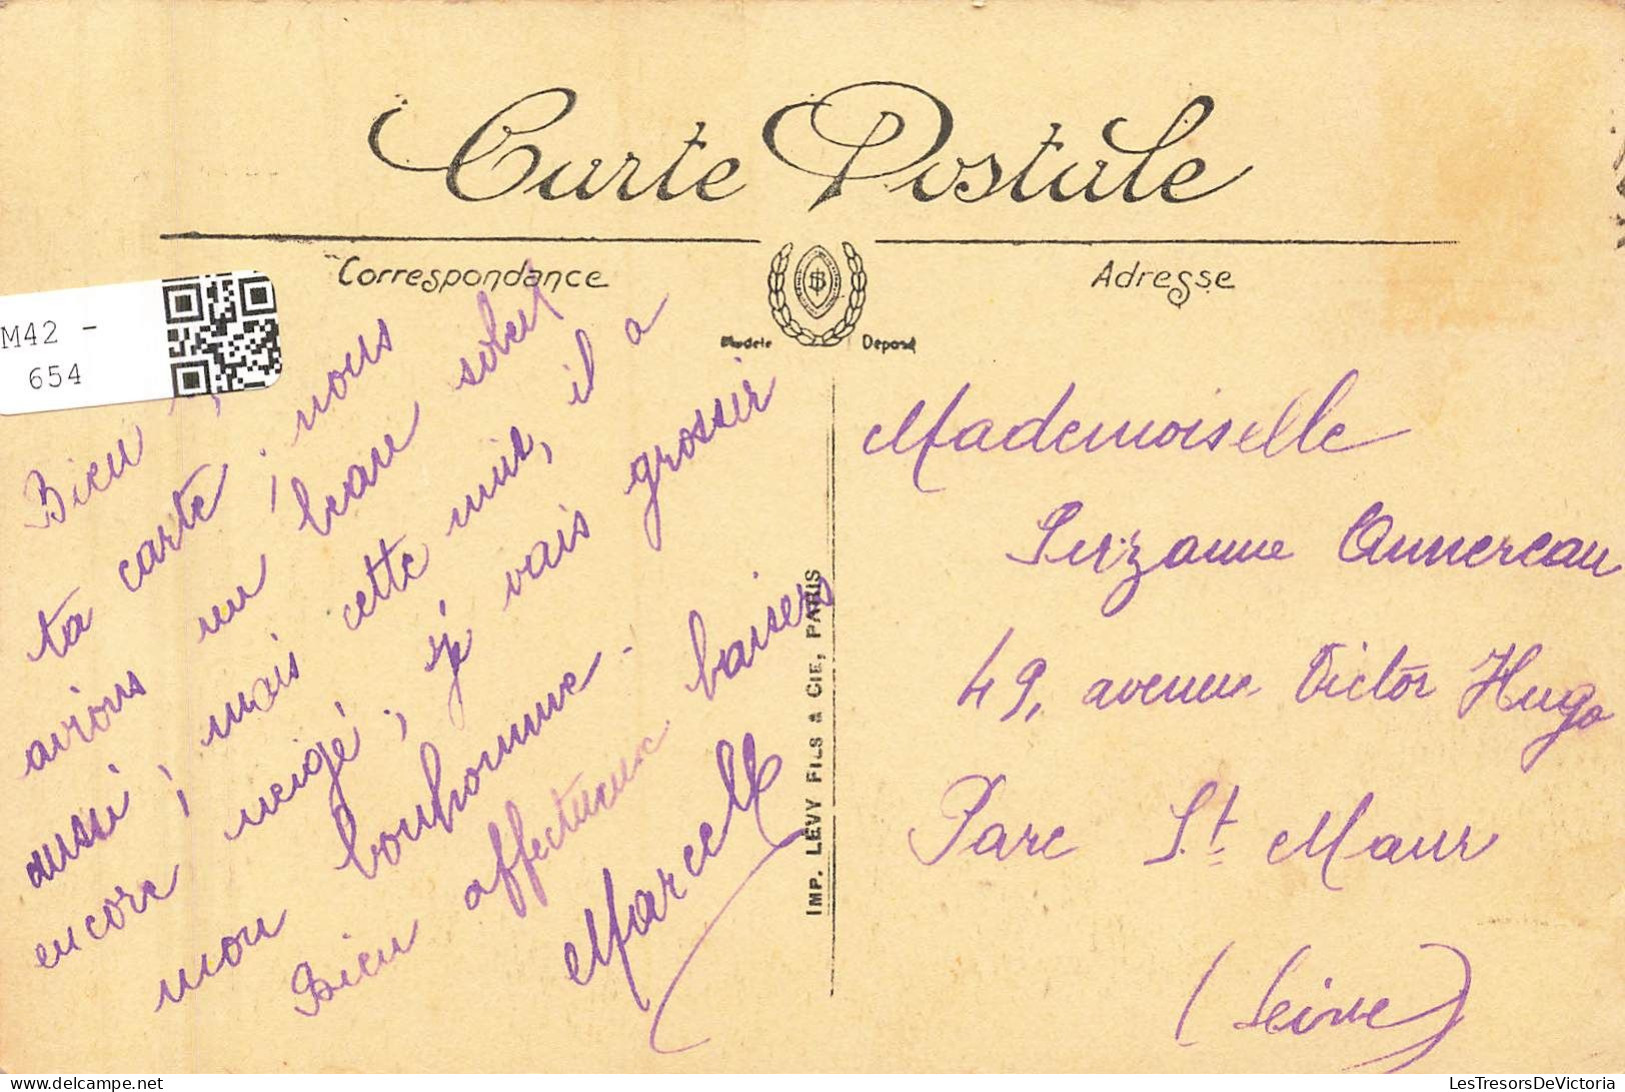 Carte Postale
Correspondance
Adresse
Modèle Déposé
M42 -
654
Bien
ta carte ; nous
avions un beau soleil
aussi ; mais cette nuit, il a
encore neigé ; je vais grossir
mon bonhomme.
Bien affectueux baisers
Marcelle
IMP. LEVY FILS & CIE, PARIS
Mademoiselle
Suzanne Annereau
49, avenue Victor Hugo
Parc St Maur
(Seine)
LesTresorsDeVictoria
delcampe.net